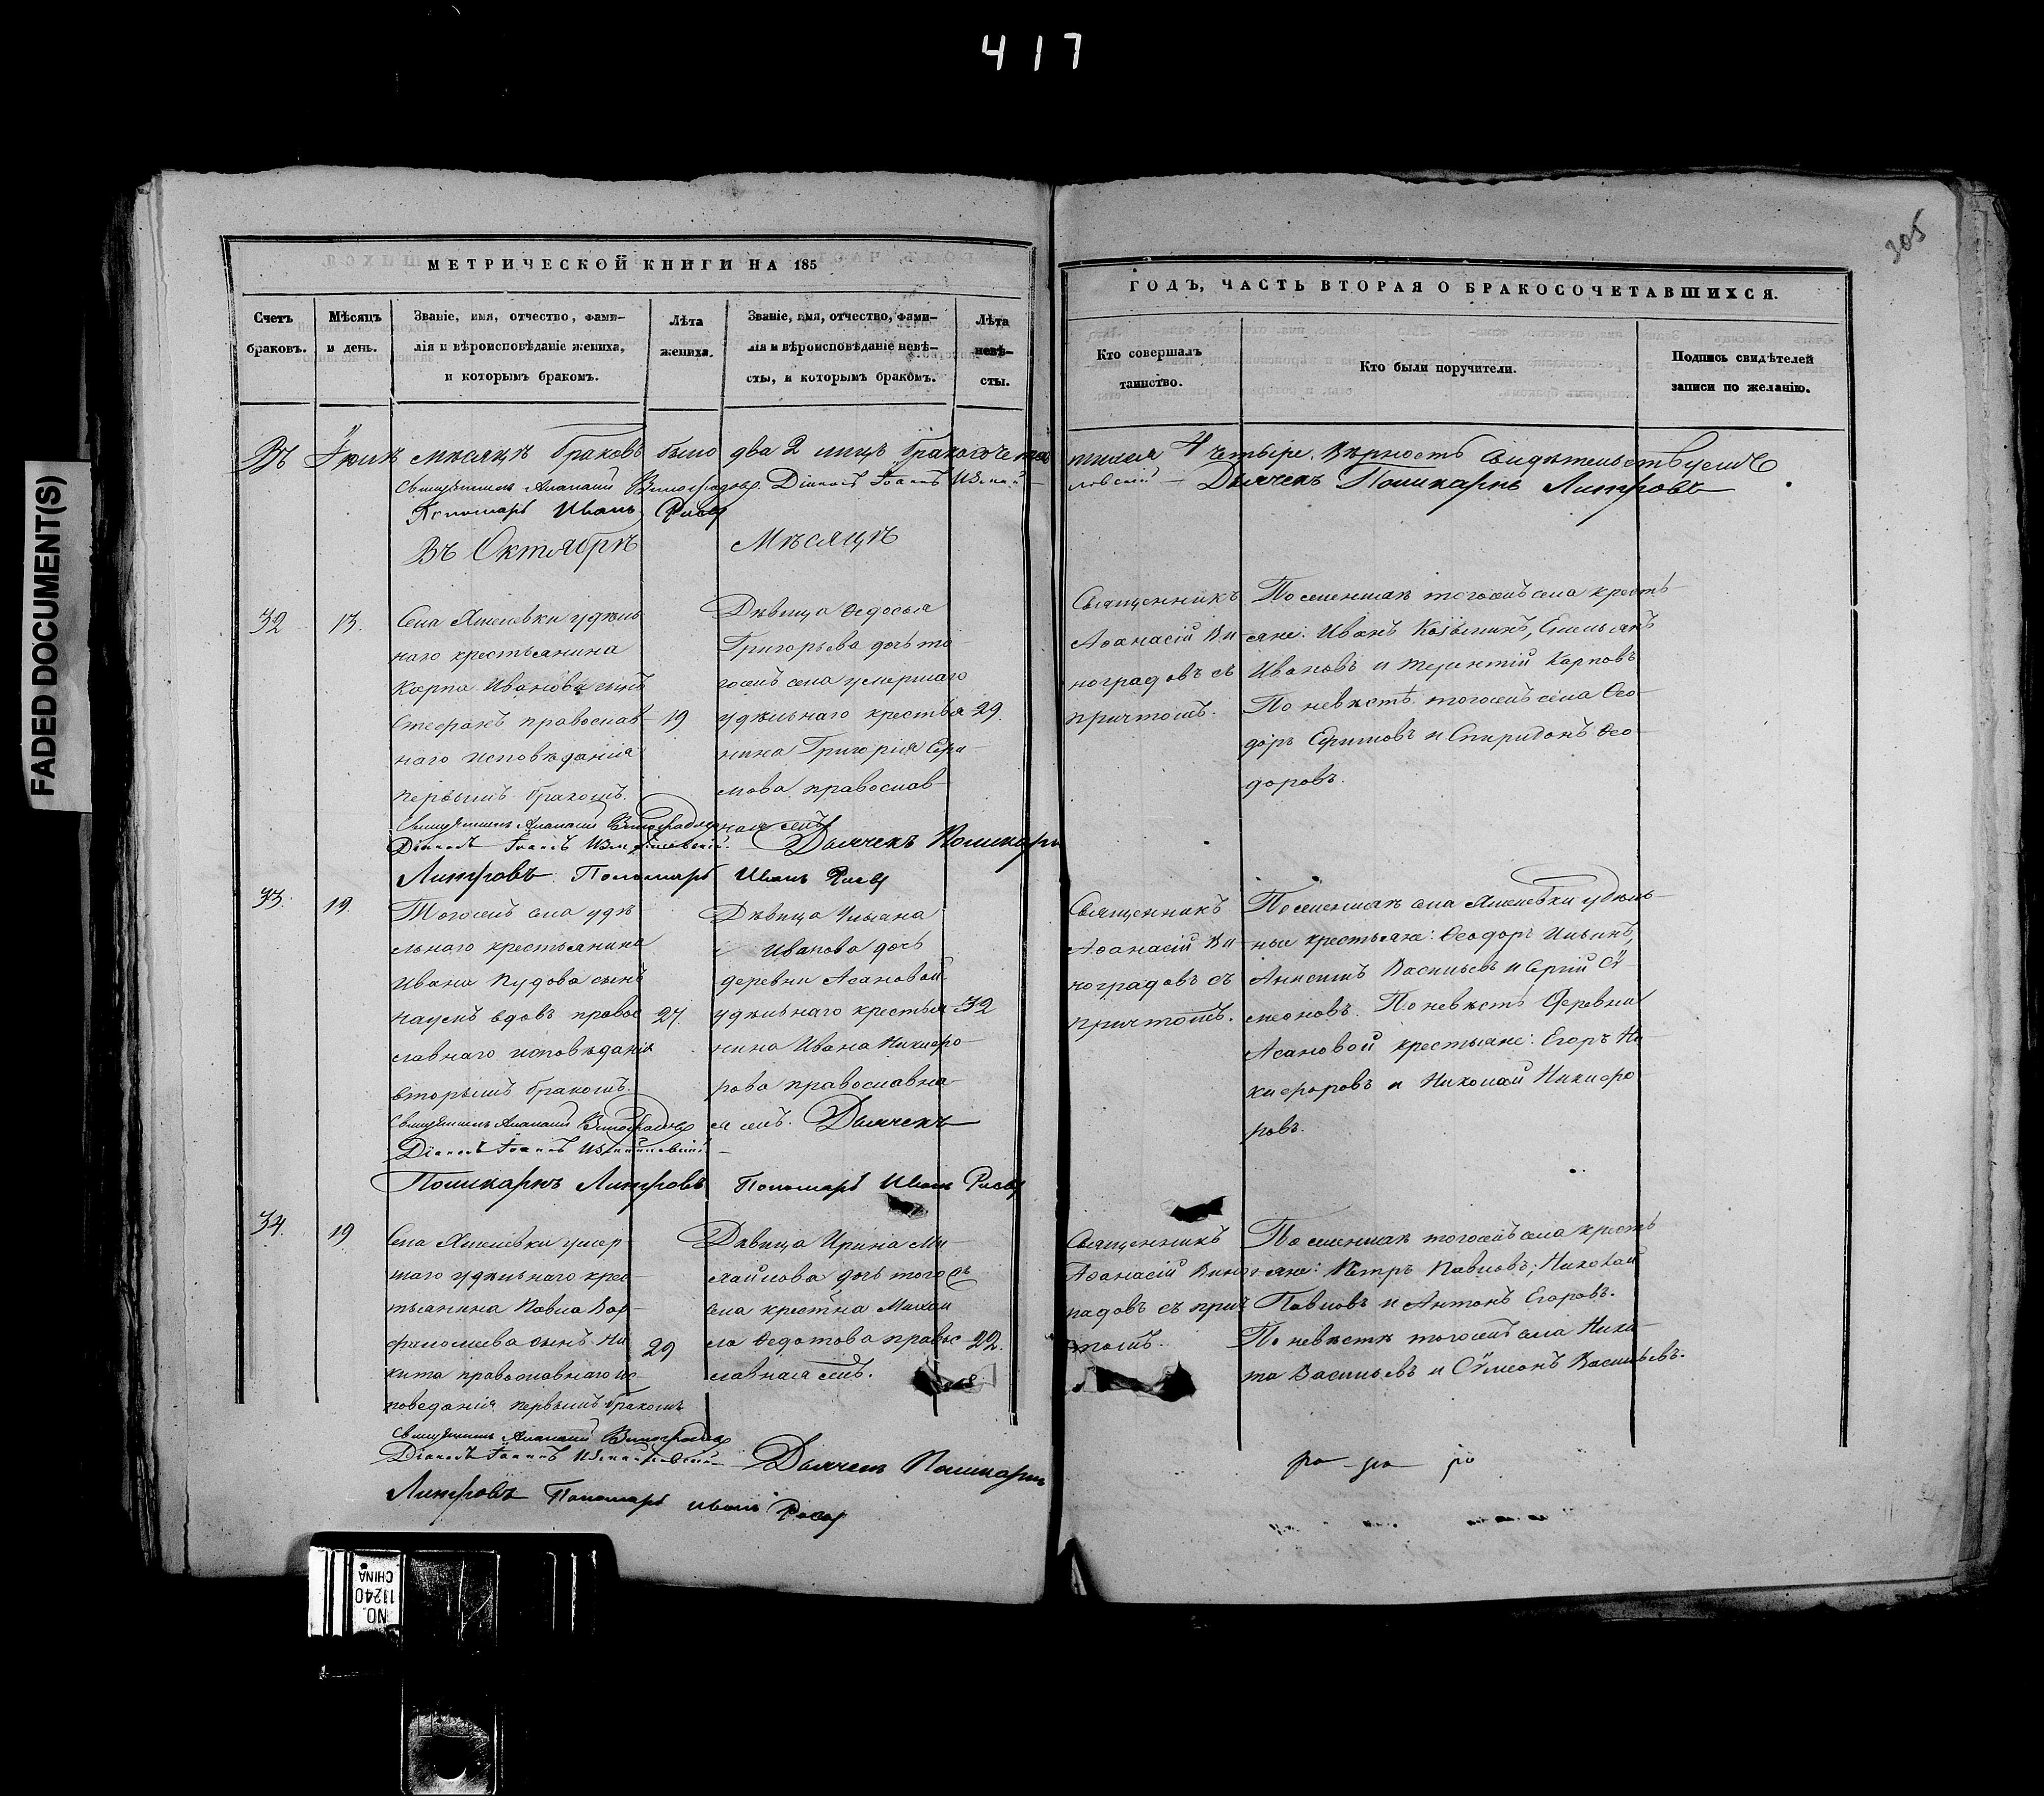 417
305
FADED DOCUMENT(S)
МЕТРИЧЕСКОЙ КНИГИ НА 185
ГОДЪ, ЧАСТЬ ВТОРАЯ О БРАКОСОЧЕТАВШИХСЯ.
Счетъ браковъ.
Мѣсяцъ и день.
Званіе, имя, отчество, фами-
лія и вѣроисповѣданіе жениха,
и которымъ бракомъ.
Лѣта жениха.
Званіе, имя, отчество, фами-
лія и вѣроисповѣданіе невѣ-
сты, и которымъ бракомъ.
Лѣта невѣ-
сты.
Кто совершалъ
таинство.
Кто были поручители.
Подпись свидѣтелей
записи по желанію.
Въ Іюлѣ мѣсяцѣ браковъ было два 2 лицъ бракосочетав
шихся 4 четыре. Вѣрность свидѣтельствуемъ
Священникъ Аѳанасій Виноградовъ. Діаконъ Іоаннъ
Дьячекъ Поликарпъ
Пономарь Иванъ
Въ Октябрѣ Мѣсяцѣ
32 13.
наго крестьянина
Карпа Иванова сынъ
Стефанъ православ-
наго исповѣданія
первымъ бракомъ.
19
Дѣвица Ѳедосья
Григорьева дочь то
гожъ села умершаго
удѣльнаго крестья
нина Григорія Ефи-
мова православ-
ная
29.
Священникъ
Аѳанасій Ви-
ноградовъ съ
причтомъ.
По женихѣ тогожъ села кресть
яне: Иванъ Козьминъ, Емельянъ
Ивановъ и Терентій Карповъ
По невѣстѣ тогожъ села Ѳео-
доръ Ефимовъ и Спиридонъ Ѳео-
доровъ.
Священникъ Аѳанасій Виноградовъ
Діаконъ Іоаннъ
Дьячекъ Поликарпъ
Пономарь Иванъ
33. 19.
Тогожъ села удѣ
льнаго крестьянина
Ивана Кудова сынъ
Наумъ вдовъ право
славнаго исповѣданія
вторымъ бракомъ.
27.
Дѣвица Ульяна
Иванова дочь
деревни Асановой
удѣльнаго крестья
нина Ивана Никифо-
рова православна
я
32
Священникъ
Аѳанасій Ви-
ноградовъ съ
причтомъ.
ные крестьяне: Ѳеодоръ Ильинъ,
Анисимъ Васильевъ и Сергій Сѵ-
меоновъ. По невѣстѣ деревни
Асановой крестьяне: Егоръ Ни
кифоровъ и Николай Никифо
ровъ.
Священникъ Аѳанасій Виноградовъ
Дьячекъ
Діаконъ Іоаннъ
Поликарпъ
Пономарь Иванъ
34. 19
шаго удѣльнаго крес-
тьянина Павла Вар-
фоломеева сынъ Ни
кита православнаго ис-
поведанія первымъ бракомъ
29
Дѣвица Ирина Ми
хайлова дочь тогожъ
села крестьянина Михаи
ла Ѳедотова правос
славная
22.
Священникъ
Аѳанасій Виног
радовъ съ прич
томъ.
По женихѣ тогожъ села кресть
яне: Петръ Павловъ, Николай
Павловъ и Антонъ Егоровъ.
По невѣстѣ тогожъ села Ники-
та Васильевъ и Сѵмеонъ Васильевъ.
Священникъ Аѳанасій Виноградовъ
Діаконъ Іоаннъ
Дьячекъ Поликарпъ
Пономарь Иванъ
NO.
11240
CHINA